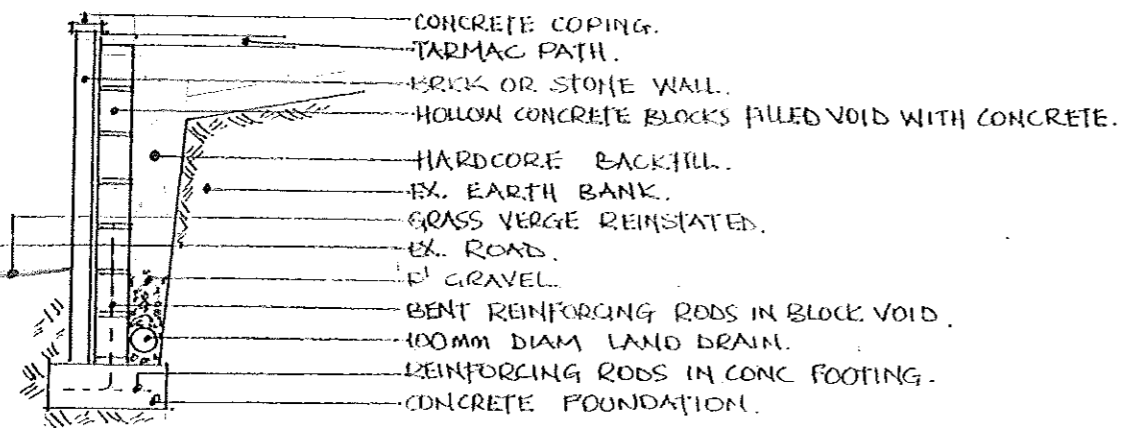 CONCRETE COPING.
TARMAC PATH.
BRICK OR STONE WALL.
HOLLOW CONCRETE BLOCKS FILLED VOID WITH CONCRETE.
HARDCORE BACKFILL.
EX. EARTH BANK.
GRASS VERGE REINSTATED.
EX. ROAD.
GRAVEL
BENT REINFORCING RODS IN BLOCK VOID.
100mm DIAM LAND DRAIN.
REINFORCING RODS IN CONC FOOTING.
CONCRETE FOUNDATION.